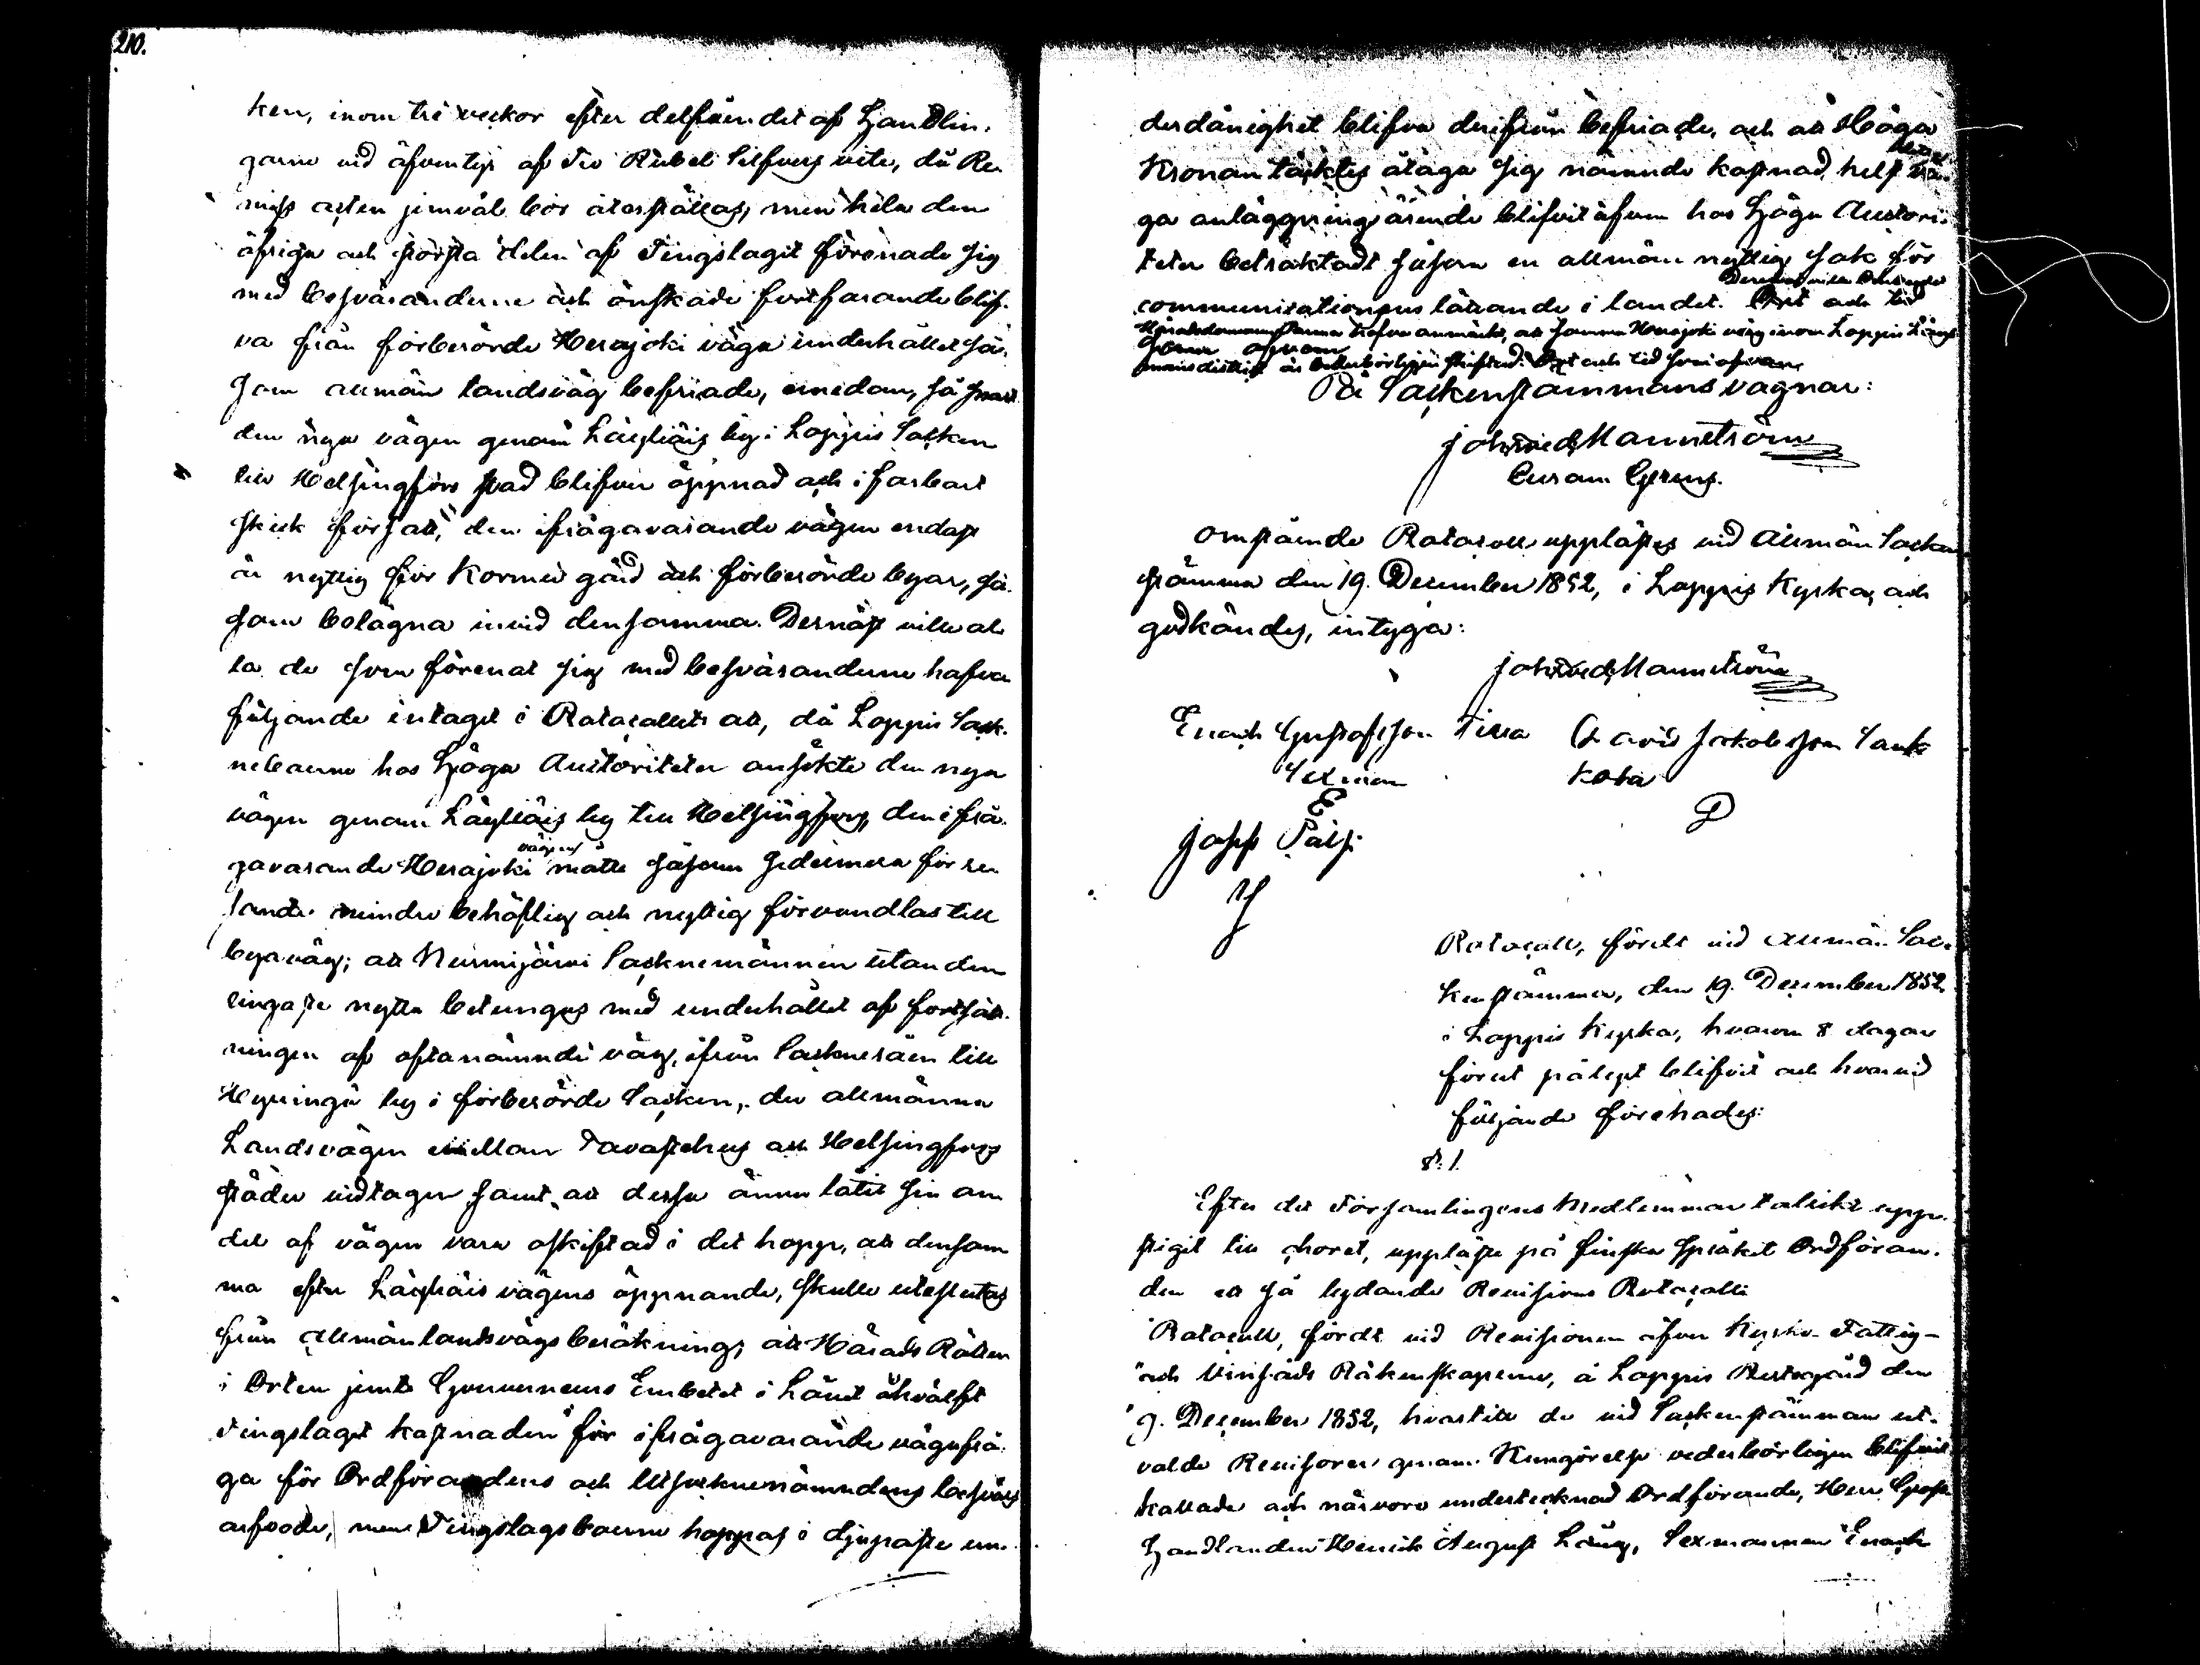 210.
ken, inom tre veckor efter delfåendet af Handlin-
garne vid äfventyr af Tio Rubel Silfvers vite, då Re-
miss acten jemväl bör återställas, men hela den
öfriga och största delen af Tingslaget förenade sig
med besväranderne och önskade fortfarande blif-
va från förberörde Herajoki väga underhållet så-
som allmän landsväg befriade, emedan, så snart
den nya vägen genom Läyliäis by i Loppis Socken
till Helsingfors stad blifver öppnad och i farbart
skick försatt, den ifrågavarande vägen endast
är nyttig för Kormu gård och förberörde byar, så-
som belägna invid densamma. Dernäst ville al-
la de som förenat sig med besväranderne hafva
följande intaget i Protocollet: att, då Loppis Sock-
neboerne hos Höga Auctoriteter ansökte den nya
vägen genom Läyliäis by till Helsingfors, den ifrå-
gavarande Herajoki vägen måtte såsom sedermera för re-
sande mindre behöflig och nyttig förvandlas till
byaväg; att Nurmijärvi Socknemännen utan den
ringaste nytta betungas med underhållet af fortsätt-
ningen af oftanämnde väg, ifrån Sockneråen till
Hyvingä by i förberörde Socken, der allmänna
Landsvägen emellan Tavastehus och Helsingfors
städer vidtager samt att dessa ännu låtit sin an-
del af vägen vara oskiftad i det hopp, att densam-
ma efter Läyliäis vägens öppnande, skulle uteslutas
från allmän landsvägs beräkning; att Härads Rätten
i Orten jemte Gouverneurs Embetet i Länet åhvälft
Tingslaget kostnaden för ifrågavarande vägafrå-
ga för Ordförandens och Utsocknenämndens besvärs
arfvode, men Tingslagsboerne hoppas i djupaste un-
derdånighet blifva derifrån befriade, och att Höga
Kronan täcktes åtaga sig nämnde kostnad, helst
ga anläggnings ärende blifvit äfven hos Höga Auctori-
teter betraktadt såsom en allmän nyttig sak för
communicationens lättande i landet. Ort och tid
Häradsdomaren hafva anmärkt, att samma Herajoki väg inom Loppis Läns-
som ofvan
mans distrikt är skiftad. Ort och tid som ofvan
På Sockenstammans vagnar:
Joh: Fried: Mannström
Curam Gerens.
Omstående Protocoll upplästes vid Allmän Socken-
stämma den 19. December 1852, i Loppis Kyrka, och
godkändes, intyga:
Joh: Fried: Mannström
Enoch Gustafsson Tirra
Sexman
E
David Jakobsson Sauk
kola
D
Josef Pälsi
Y
Protocoll, fördt vid allmän Soc-
kenstämma, den 19. December 1852.
i Loppis Kyrka, hvarom 8 dagar
förut pålyst blifvit och hvarvid
följande förehades:
§. 1.
Efter det Församlingens Medlemmar talrikt upp-
stigit till choret, upplästes på finska språket Ordföran-
den ett så lydande Revisions Protocoll:
"Protocoll, fördt vid Revisionen öfver Kyrko- Fattig-
"och Vinsäds Räkenskaperne, å Loppis Prestegård den
"9. December 1852, hvartill de vid Sockenstämman ut-
valde Revisorer genom Kungörelse vederbörligen blifvit
kallade och närvoro undertecknad Ordförande, Herr Gross
Handlanden Henrik August Lång, Sexmannen Enoch